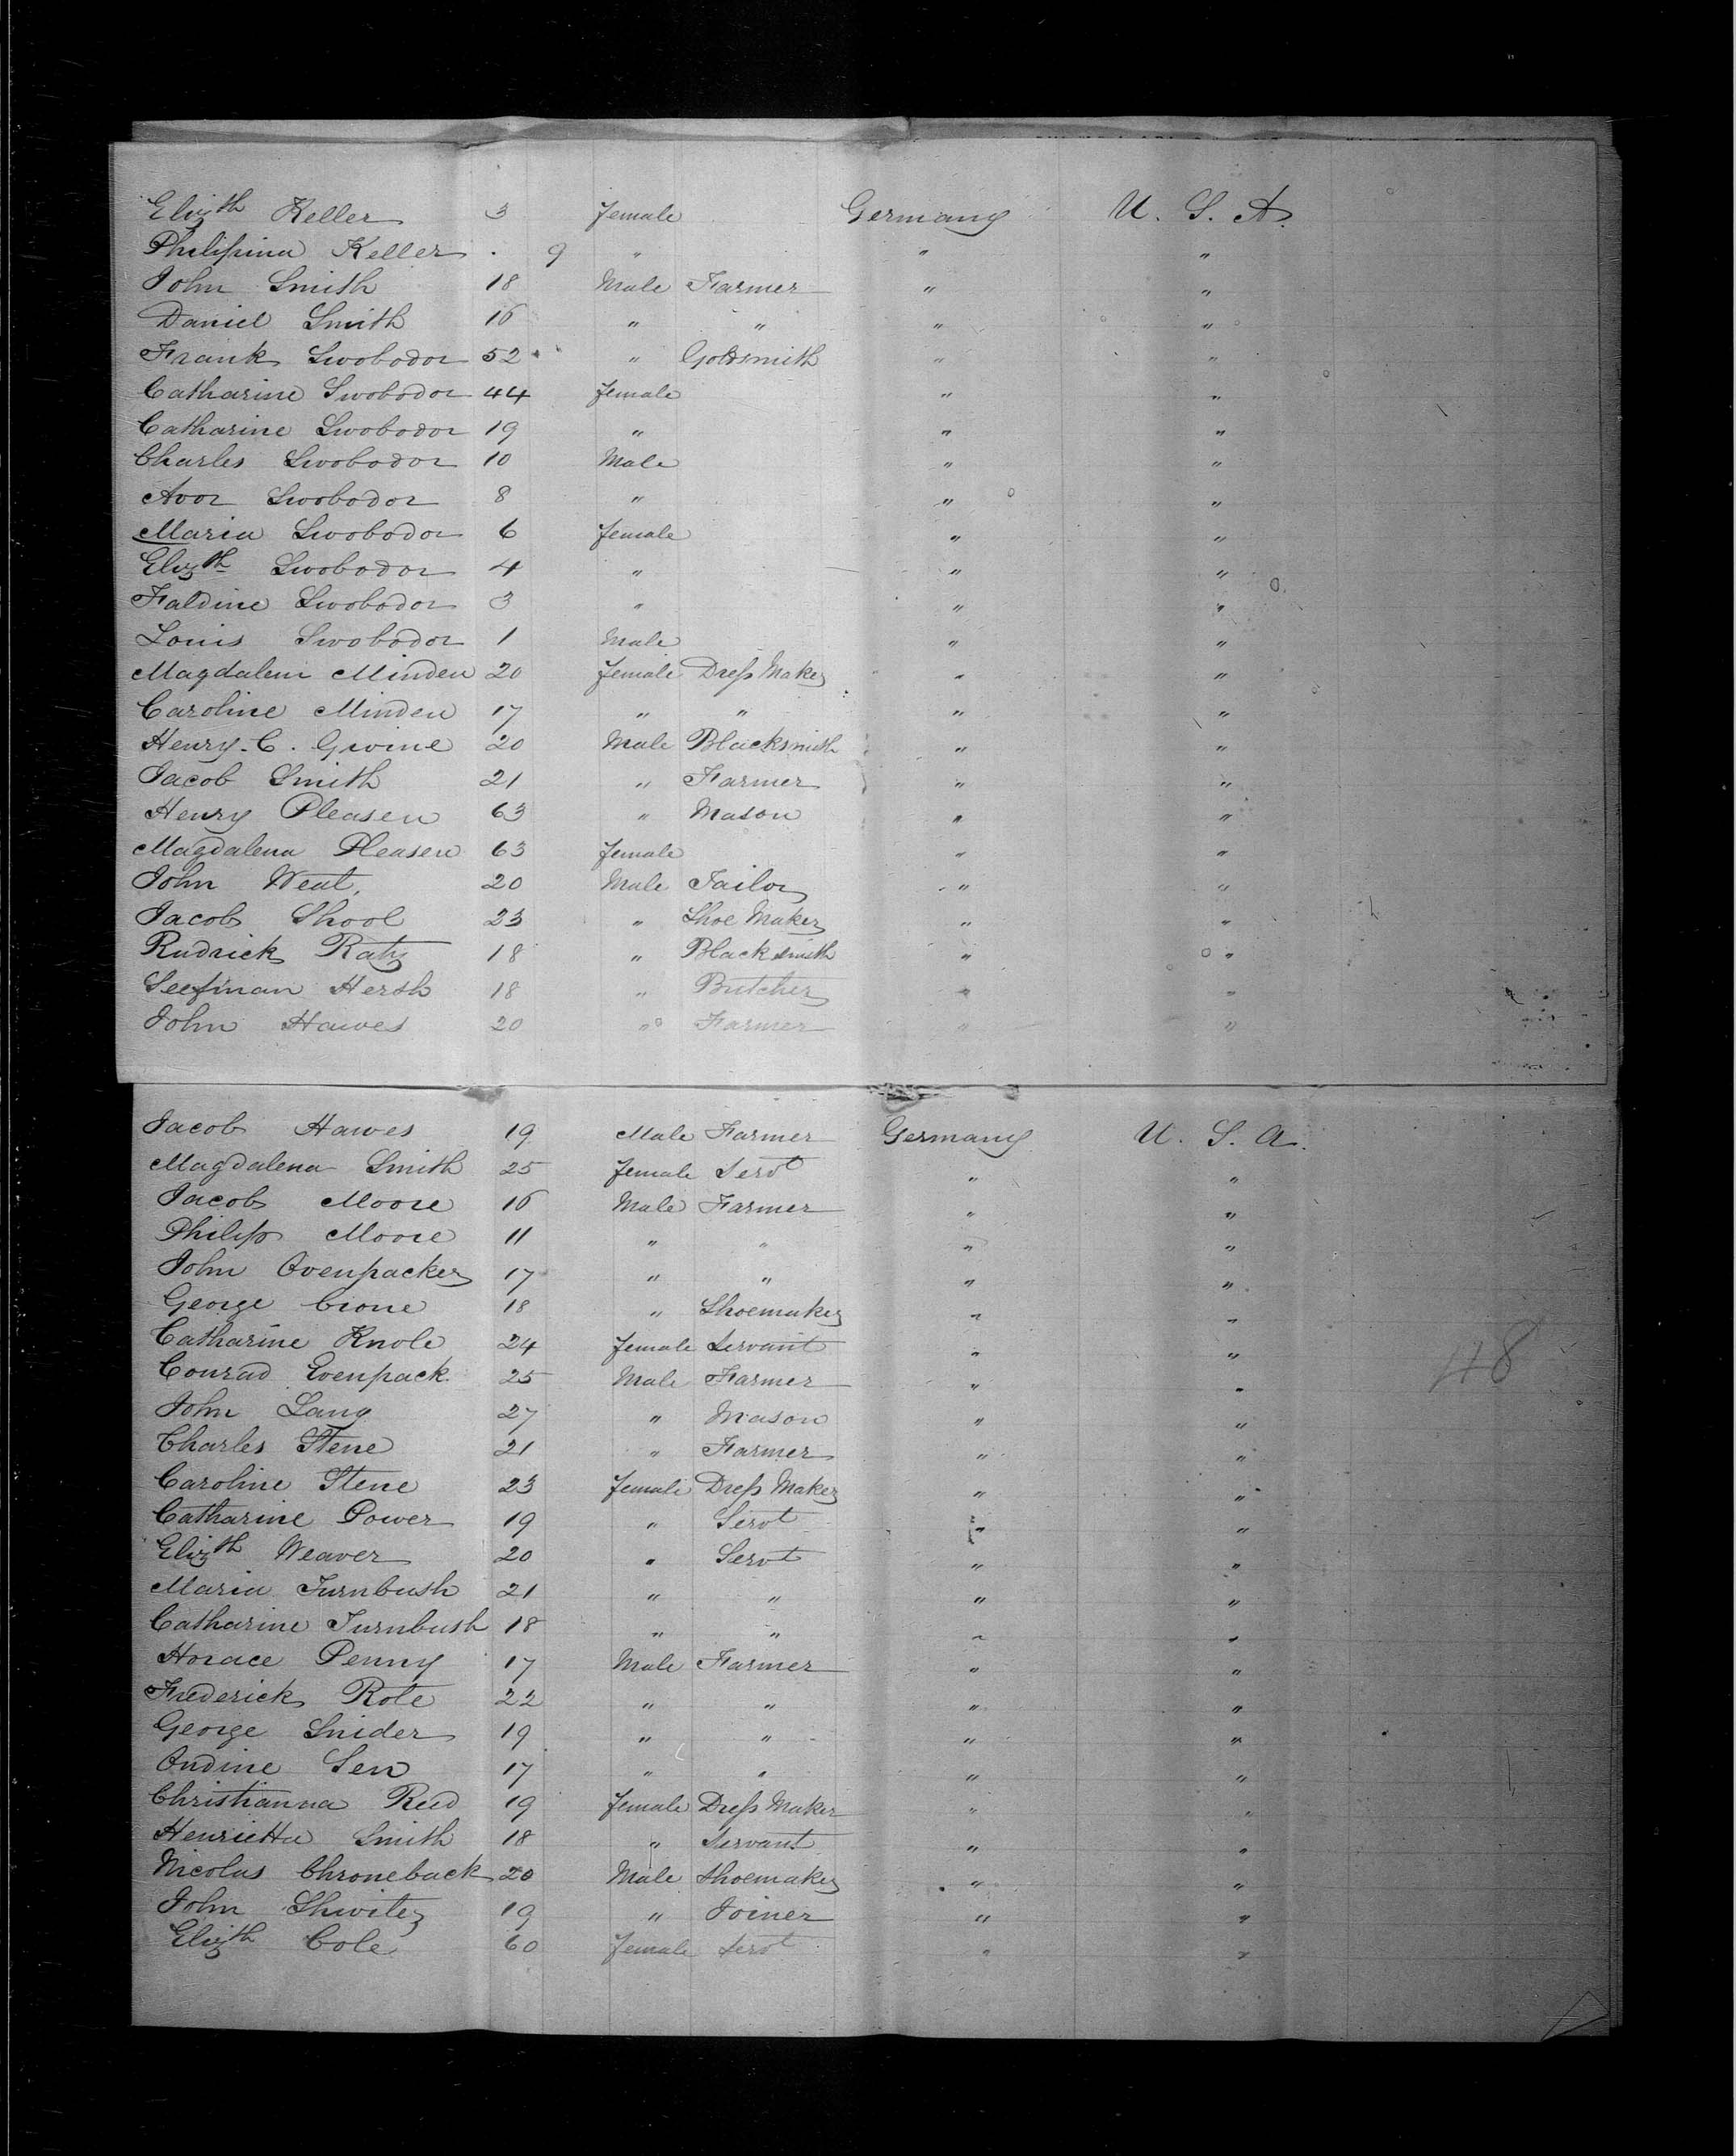 Elizth Keller 3 female Germany U. S. A.
Philipina Keller . 9 " " "
John Smith 18 Male Farmer " "
Daniel Smith 16 " " " "
Frank Swobodor 52 " Goldsmith " "
Catharine Swobodor 44 female " "
Catharine Swobodor 19 " " "
Charles Swobodor 10 Male " "
Avor Swobodor 8 " " "
Maria Swobodor 6 female " "
Elizth Swobodor 4 " " "
Faldine Swobodor 3 " " "
Louis Swobodor 1 Male " "
Magdalem Minden 20 female Dress Maker " "
Caroline Minden 17 " " " "
Henry. C. Gwine 20 Male Blacksmith " "
Jacob Smith 21 " Farmer " "
Henry Pleasen 63 " Mason " "
Magdalena Pleasen 63 female " "
John Weat. 20 Male Tailor " "
Jacob Shool 23 " Shoe Maker " "
Rudrick Ratz 18 " Blacksmith " "
Seefman Hersh 18 " Butcher " "
John Hawes 20 " Farmer " "
Jacob Hawes 19 Male Farmer Germany U. S. A.
Magdalena Smith 25 female Servt " "
Jacob Moore 16 Male Farmer " "
Philip Moore 11 " " " "
John Ovenpacker 17 " " " "
George Crone 18 " Shoemaker " "
Catharine Knole 24 female Servant " "
Conrad Evenpack 25 Male Farmer " "
John Lang 27 " Mason " "
Charles Stene 21 " Farmer " "
Caroline Stene 23 female Dress Maker " "
Catharine Power 19 " Servt " "
Elizth Weaver 20 " Servt " "
Maria Turnbush 21 " " " "
Catharine Turnbush 18 " " " "
Horace Penny 17 Male Farmer " "
Frederick Rote 22 " " " "
George Snider 19 " " " "
Ondine Sen 17 " " " "
Christianna Reed 19 female Dress Maker " "
Henrietta Smith 18 " Servant " "
Nicolas Chroneback 20 Male Shoemaker " "
John Shwitez 19 " Joiner " "
Elizth Cole 60 female Servt " "
48